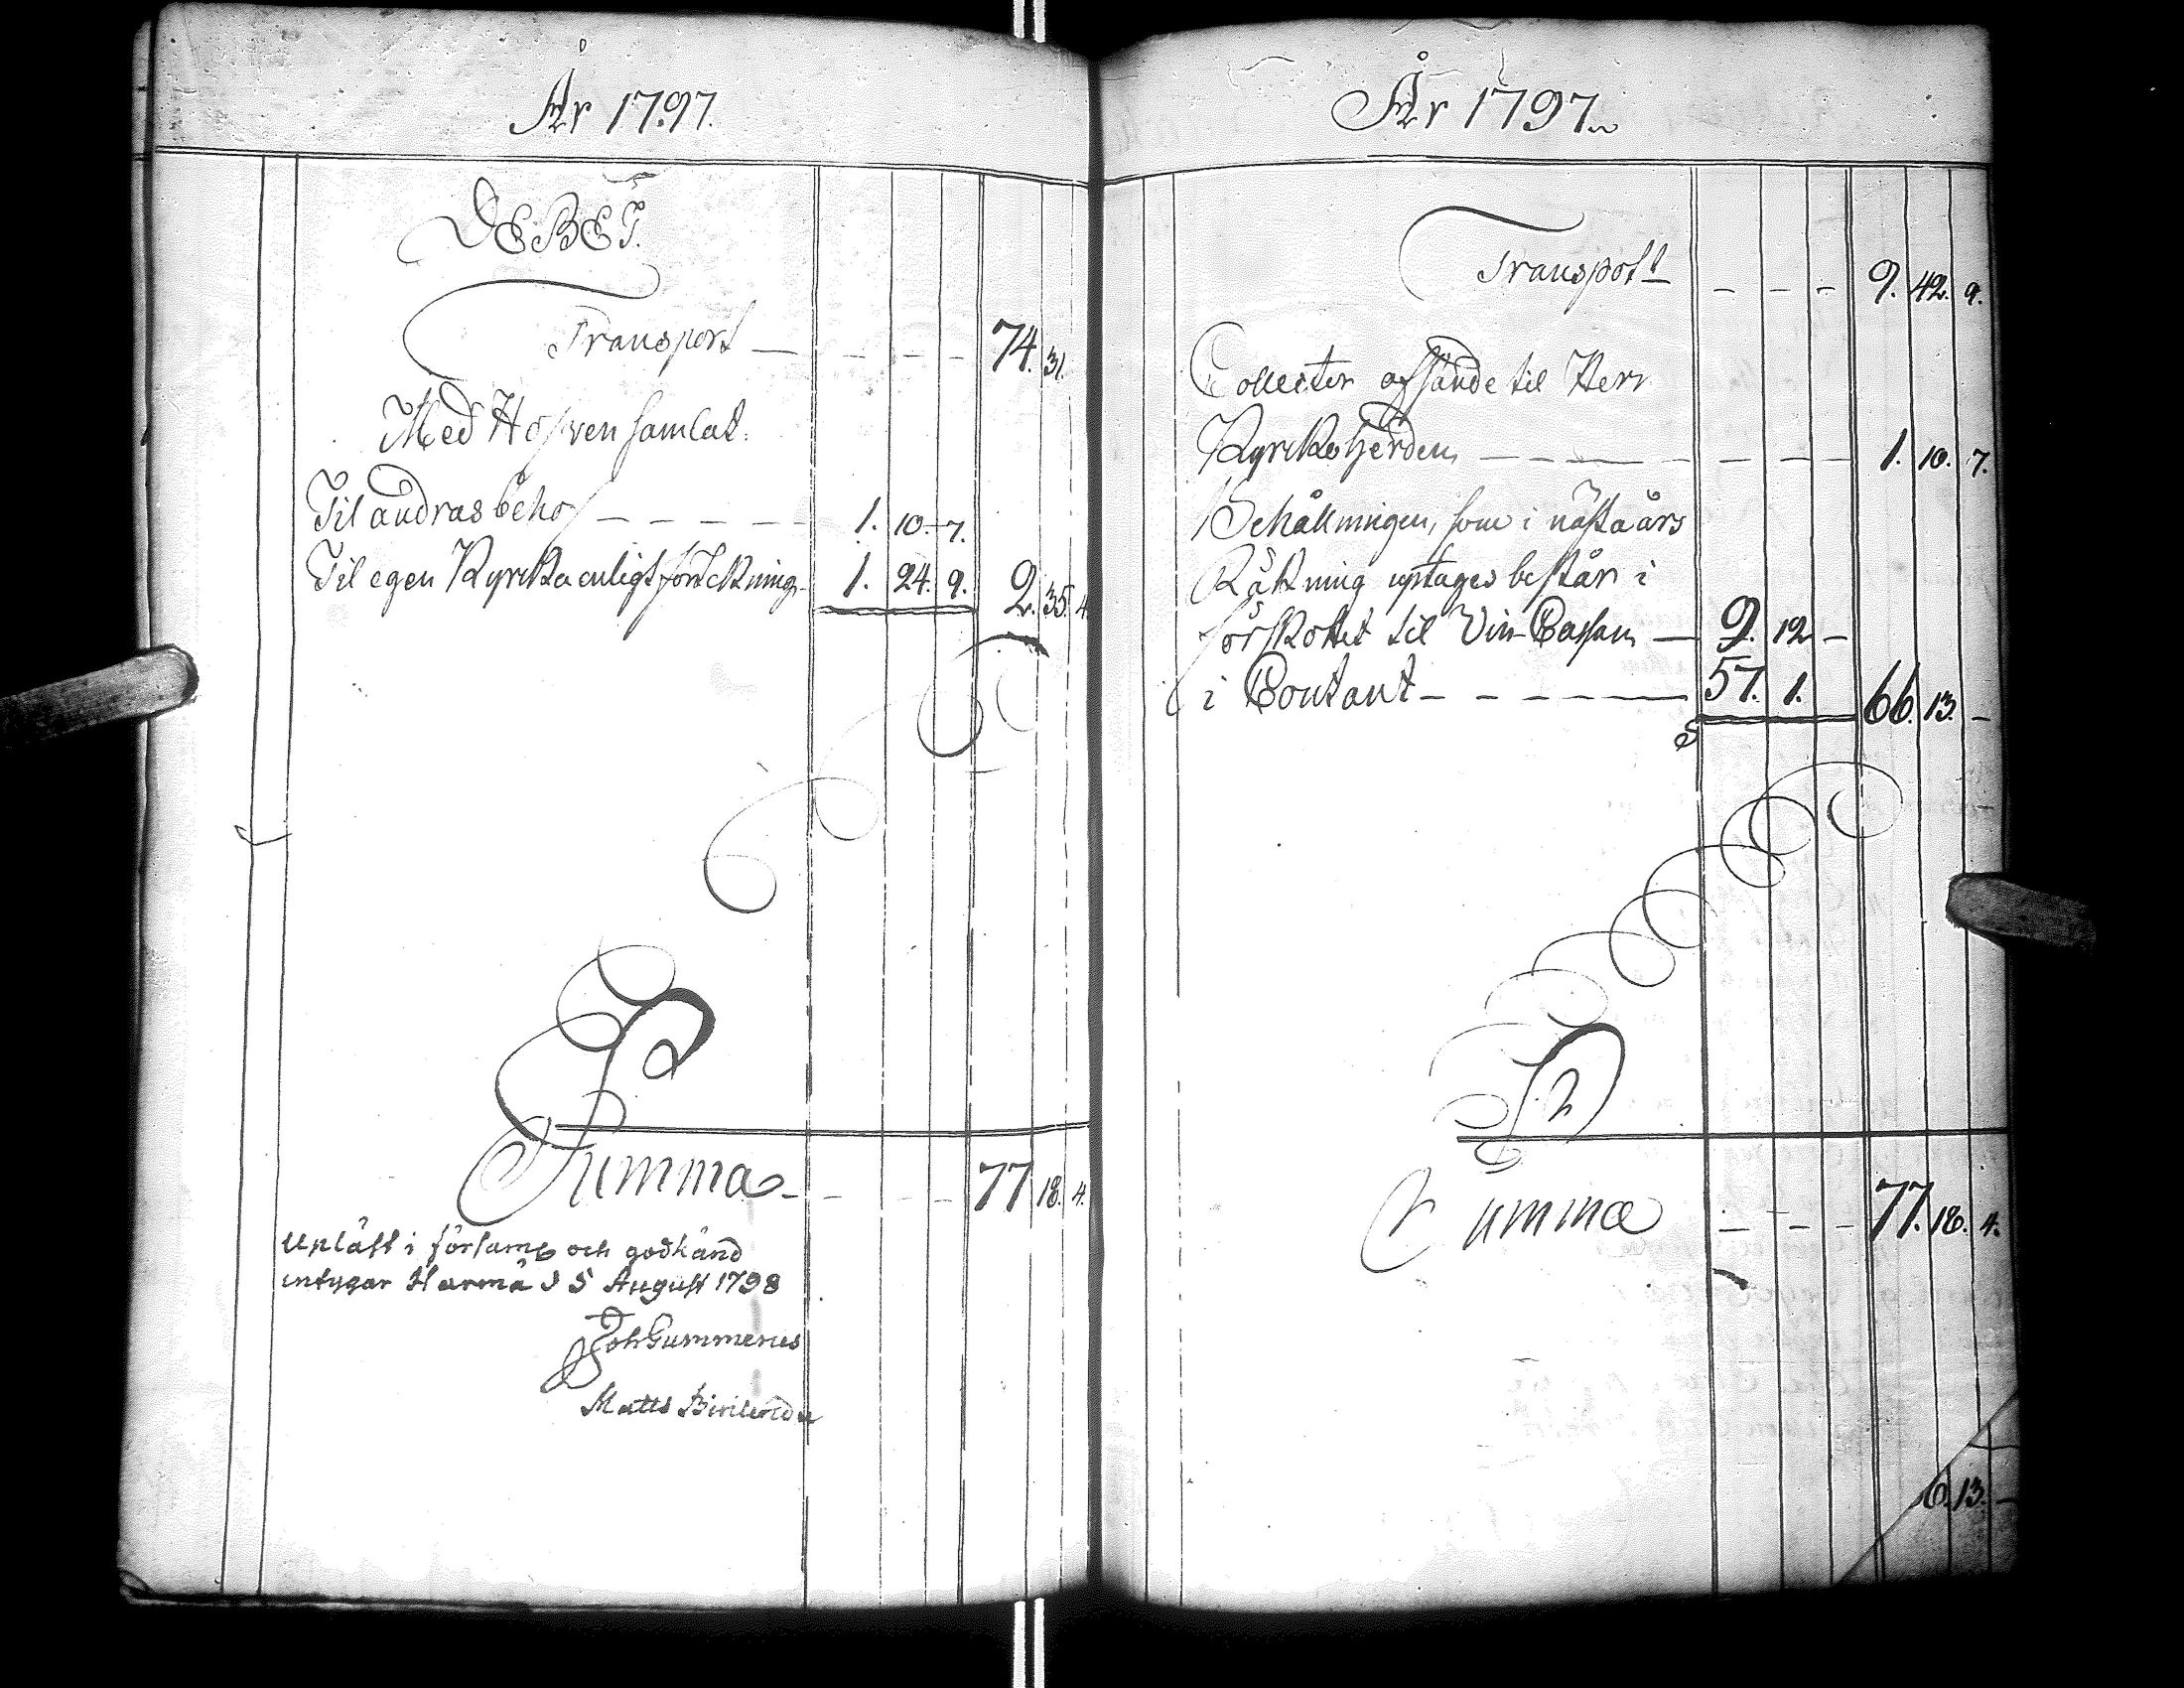 År 1797.
DEBET.
Transport — — — — 74. 31.
Med Hofven samlat.
Til andras behof — — — — — 1. 10. 7.
Til egen Kyrka enligt förteckning 1. 24. 9. 2. 35. 4.
Summa — — — — 77 18. 4.
Upläst i församl och godkänd
intygar Härmä d 5 August 1798
Joh Gummerus
Matts
År 1797.
Transport — — — — 9. 42. 9.
Collecter afsände til Herr
Kyrkoherden — — — — — — — 1. 10. 7.
Behållningen, som i nästa års
Räkning uptages består i
förskottet til Vin-Cassan — 9. 12 —
i Contant — — — — — 57. 1. 66. 13. —
Summa — — — — 77. 18. 4.
6. 13. —